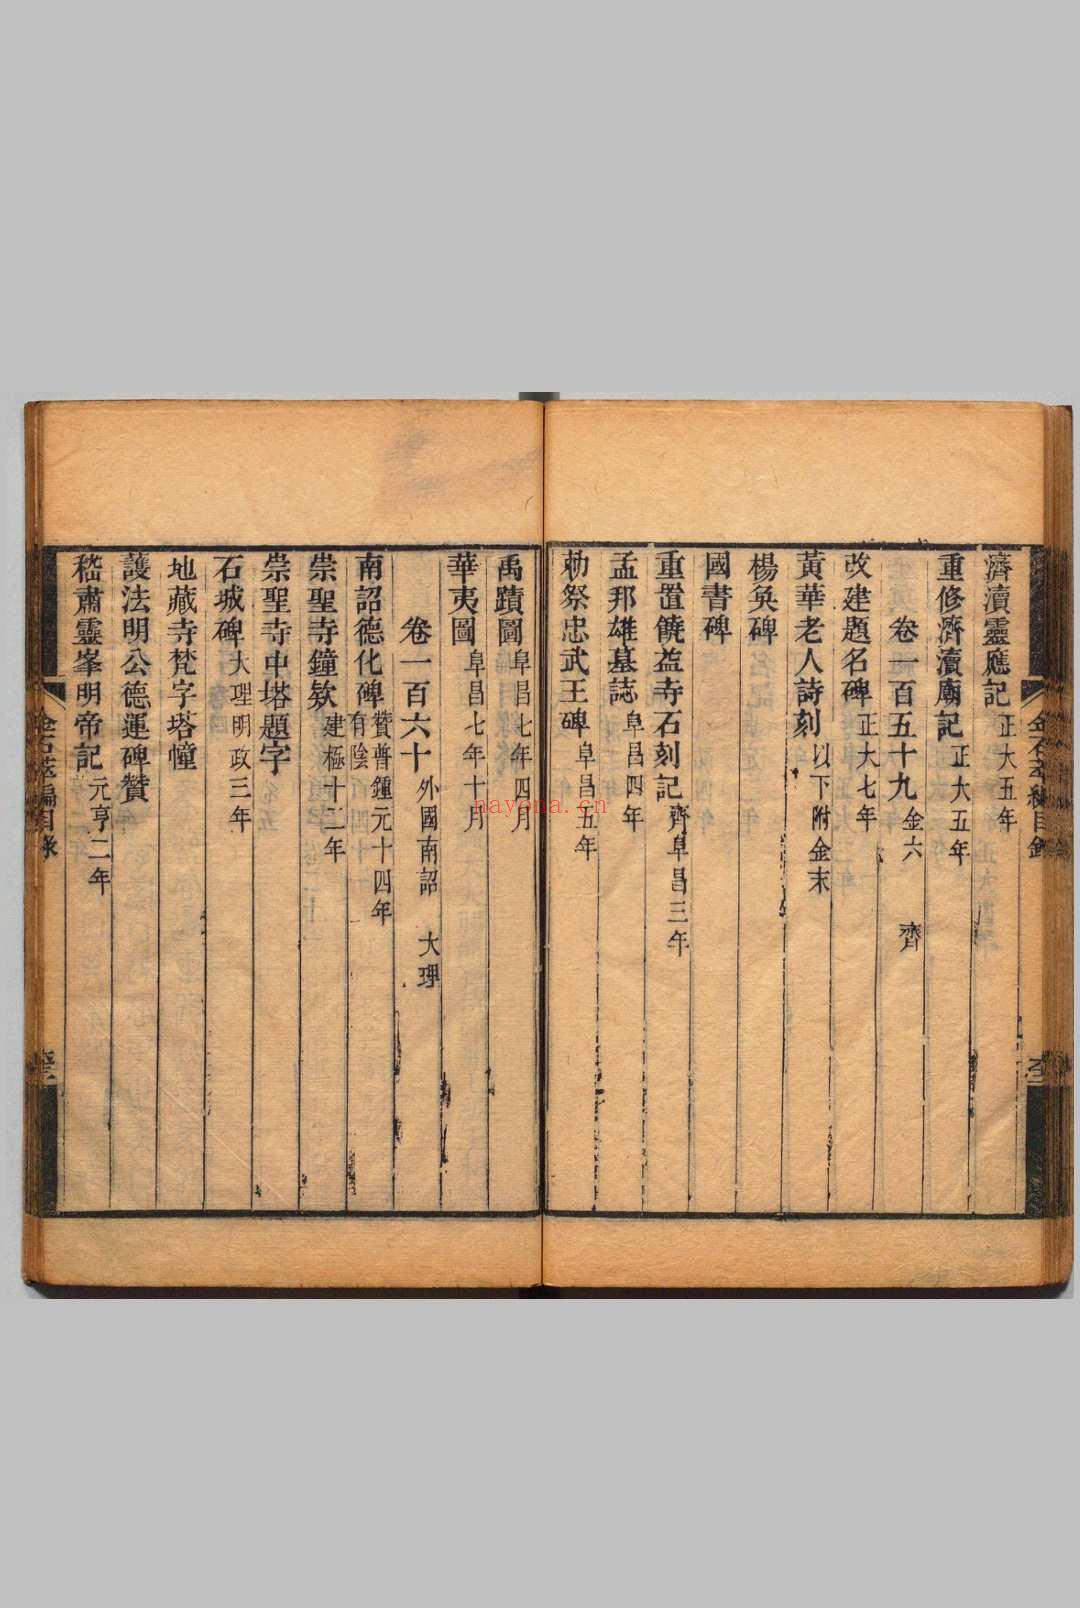 濟瀆靈應記 正大五年
重修濟瀆廟記 正大五年
卷一百五十九 金六 齊
改建題名碑 正大七年
黃華老人詩刻 以下附金末
楊奐碑
國書碑
重置饒益寺石刻記 齊阜昌三年
孟邦雄墓誌 阜昌四年
勑祭忠武王碑 阜昌五年
禹蹟圖 阜昌七年四月
華夷圖 阜昌七年十月
卷一百六十 外國南詔 大理
南詔德化碑 贊普鍾元十四年 有陰
崇聖寺鐘欵 建極十二年
崇聖寺中塔題字
石城碑 大理明政三年
地藏寺梵字塔幢
護法明公德運碑贊
嵇肅靈峯明帝記 元亨二年
金石萃編目錄
nayona.cn